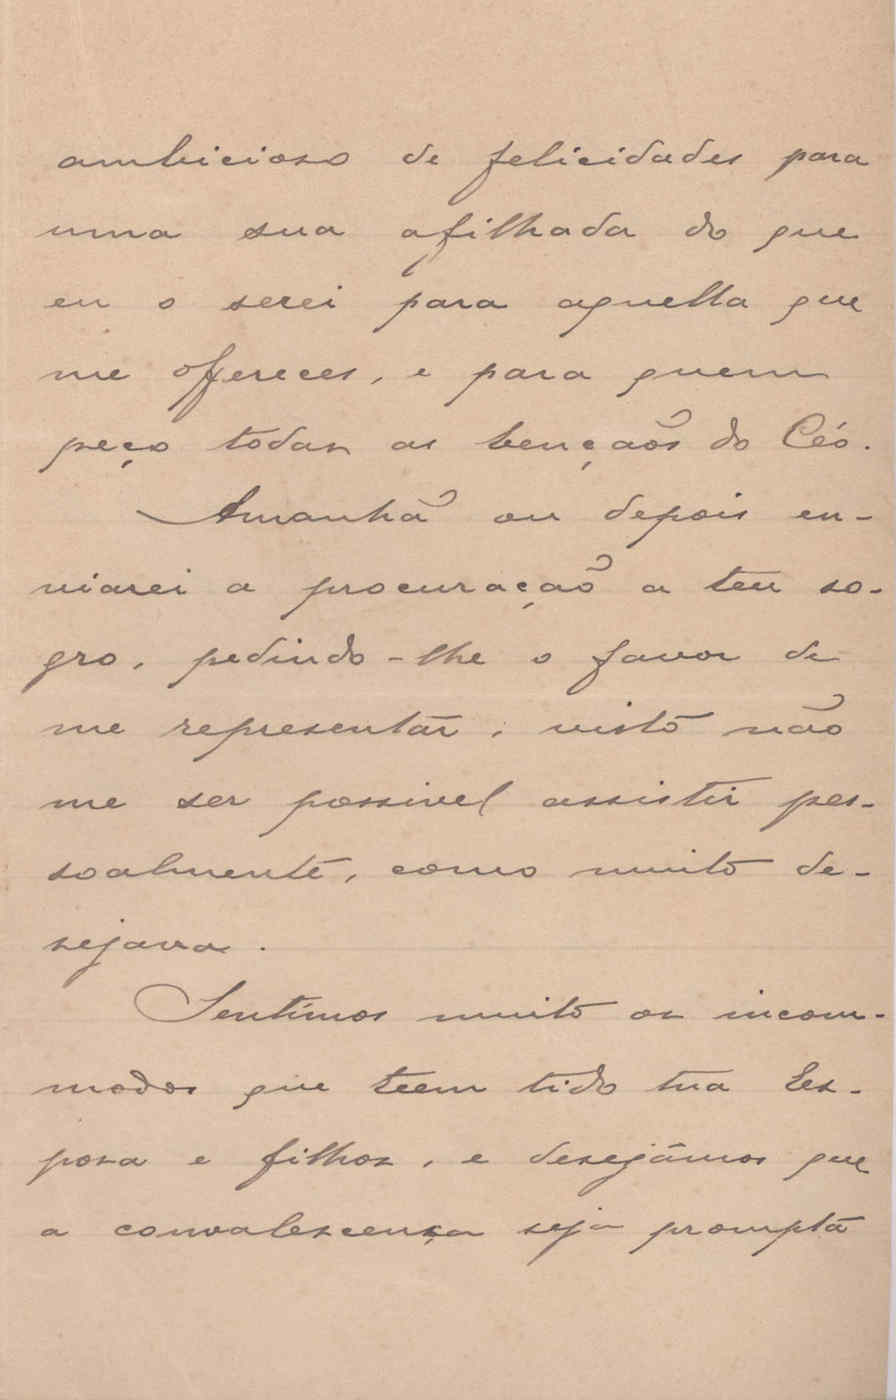 ambicioso de felicidades para
uma sua afilhada do que
eu o serei para aquella que
me offereces, e para quem
peço todas as bençaõs do Céo.
Amanhã ou depois en-
viarei a procuraçaõ a teu so-
gro, pedindo-lhe o favor de
me representar, visto não
me ser possivel assistir pes-
soalmente, como muito de-
sejava.
Sentimos muito os incom-
modos que teem tido tua Es-
posa e filhos, e desejâmos que
a convalescença seja prompta